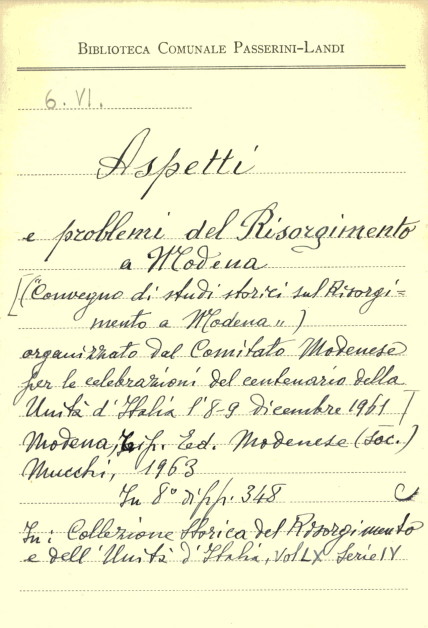 BIBLIOTECA COMUNALE PASSERINI-LANDI
6. VI.
Aspetti
e problemi del Risorgimento
a Modena
[("Convegno di studi storici sul Risorgi=
mento a Modena„)
organizzato dal Comitato Modenese
per le celebrazioni del centenario della
Unità d'Italia l'8-9 dicembre 1961]
Modena, Tip. Ed. Modenese (Soc.)
Mucchi, 1963
In 8° di pp. 348
In: Collezione Storica del Risorgimento
e dell'Unità d'Italia, Vol LX Serie IV